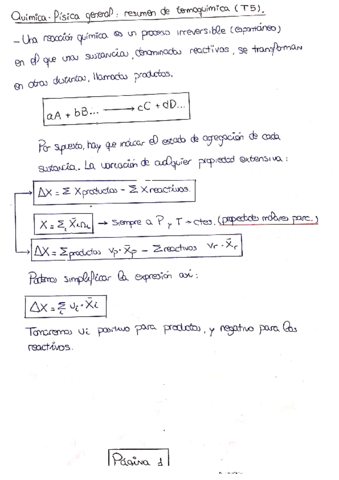 Química-Física general: resumen de termoquímica (T5).
- Una reacción química es un proceso irreversible (espontáneo)
en el que unas sustancias, denominadas reactivos, se transforman
en otras distintas, llamadas productos.
aA + bB... ⟶ cC + dD...
Por supuesto, hay que indicar el estado de agregación de cada
sustancia. La variación de cualquier propiedad extensiva:
ΔX = Σ Xproductos - Σ Xreactivos.
X = Σᵢ X̄ᵢnᵢ → siempre a P y T → ctes. (propiedades molares parc.)
ΔX = Σproductos νp · X̄p - Σreactivos νr · X̄r
Podemos simplificar la expresión así:
ΔX = Σᵢ νᵢ · X̄ᵢ
Tomaremos νi positivo para productos, y negativo para los
reactivos.
Página 1